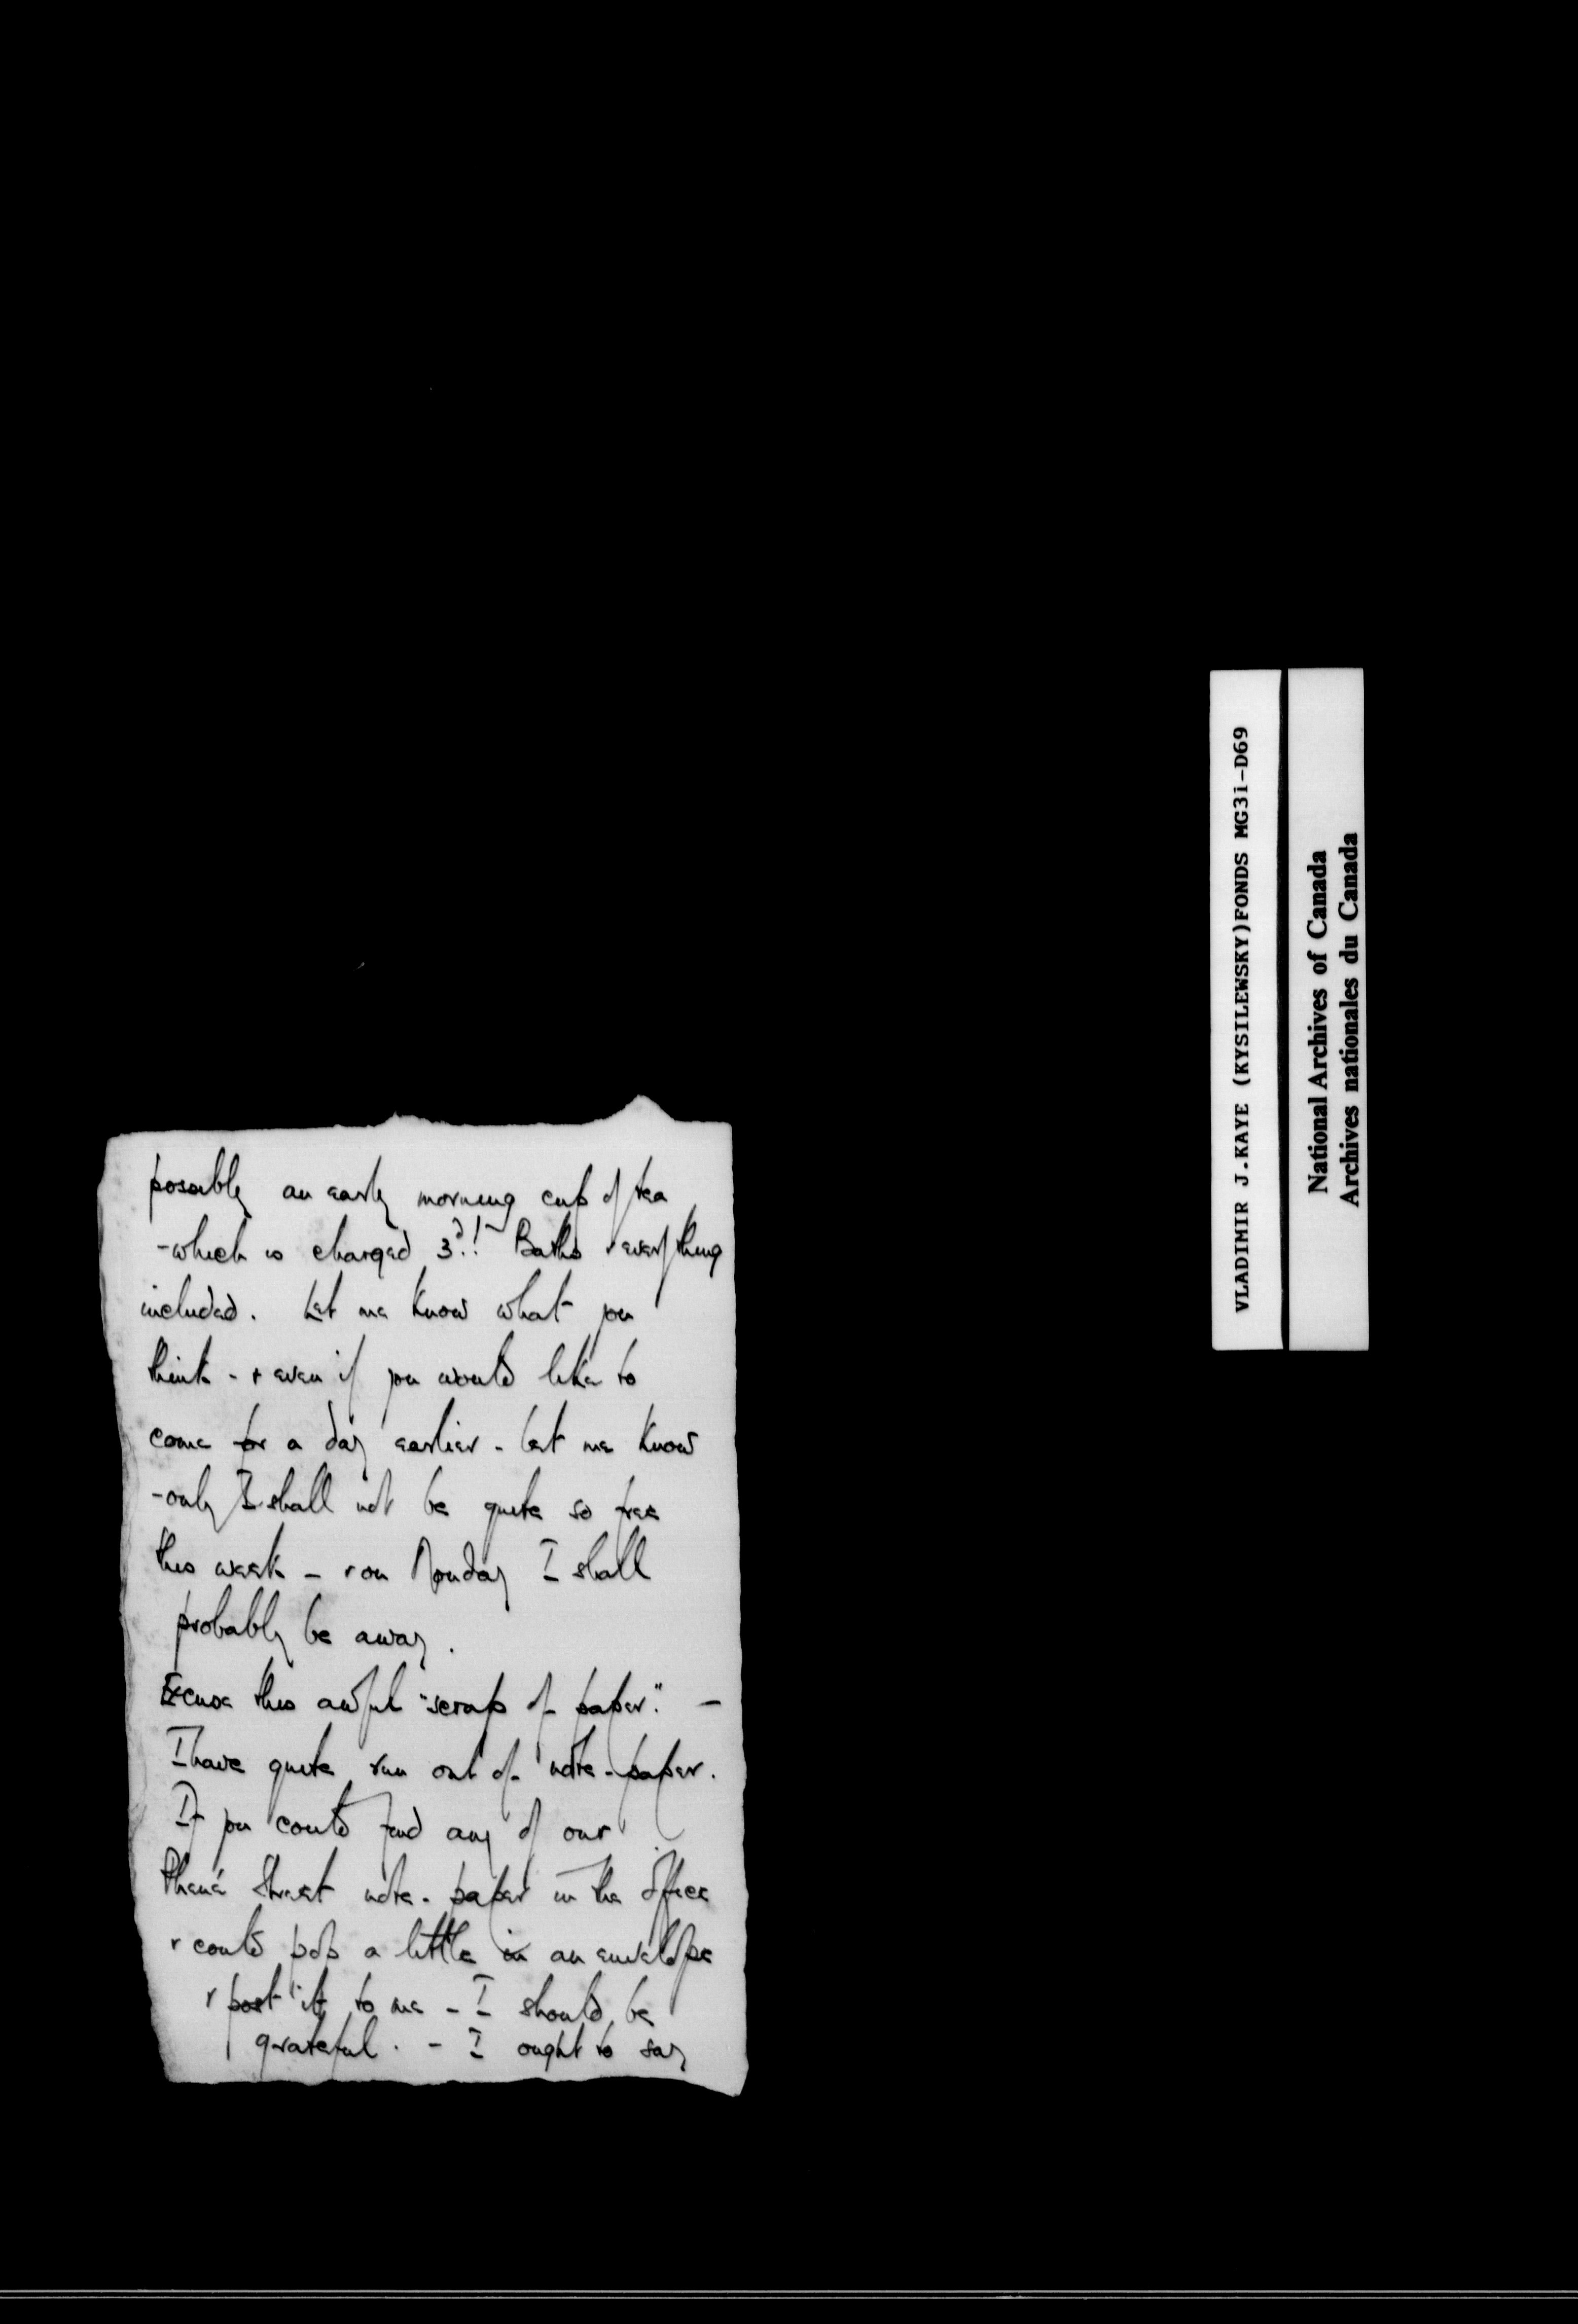 possibly an early morning cup of tea
- which is charged 3d!! Baths & everything
included. Let me know what you
think - & even if you would like to
come for a day earlier - let me know
- only I shall not be quite so free
this week - & on Monday I shall
probably be away.
Excuse this awful "scrap of paper". -
I have quite run out of note-paper.
If you could find any of our
Street note-paper in the office
& could pop a little in an envelope
& post it to me - I should be
grateful. - I ought to say
VLADIMIR J.KAYE (KYSILEWSKY)FONDS MG31-D69
National Archives of Canada
Archives nationales du Canada